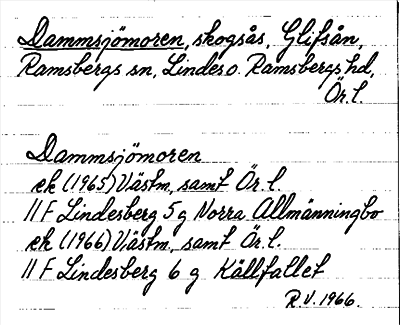 Dammsjömoren, skogsås, Glifsån,
Ramsbergs sn, Lindes o. Ramsbergs hd,
Ör. l.
Dammsjömoren
ek (1965) Västm, samt Ör. l.
11 F Lindesberg 5 g Norra Allmänningbo
ek (1966) Västm, samt Ör. l.
11 F Lindesberg 6 g Källfallet
R.V. 1966.